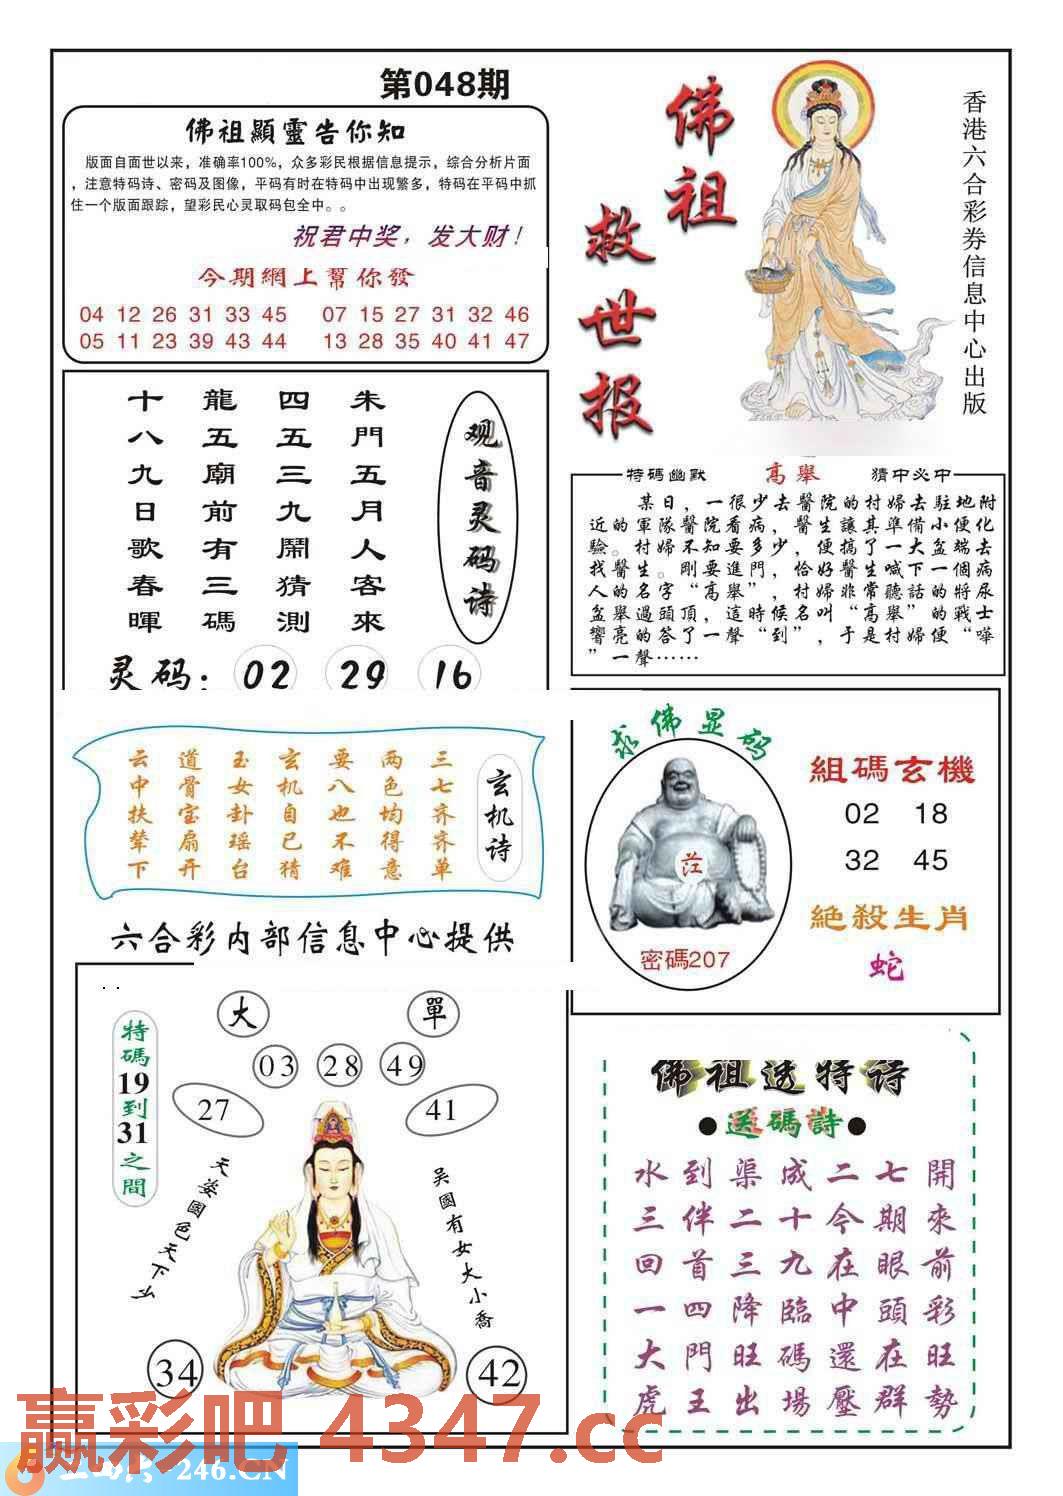 第048期
佛祖顯靈告你知
版面自面世以来，准确率100%，众多彩民根据信息提示，综合分析片面
，注意特码诗、密码及图像，平码有时在特码中出现繁多，特码在平码中抓
住一个版面跟踪，望彩民心灵取码包全中。。
祝君中奖，发大财！
今期網上幫你發
04 12 26 31 33 45 07 15 27 31 32 46
05 11 23 39 43 44 13 28 35 40 41 47
佛祖
救世报
香港六合彩券信息中心出版
观音灵码诗
朱門五月人客來
四五三九鬧猜測
龍五廟前有三碼
十八九日歌春暉
灵码：02 29 16
特碼幽默 高舉 猜中必中
某日，一很少去醫院的村婦去駐地附
近的軍隊醫院看病，醫生讓其準備小便化
驗。村婦不知要多少，便搞了一大盆端去
找醫生。剛要進門，恰好醫生喊下一個病
人的名字“高舉”，村婦非常聽話的將尿
盆舉過頭頂，這時候名叫“高舉”的戰士
響亮的答了一聲“到”，于是村婦便“嘩
”一聲……
玄机诗
三七齐齐单
两色均得意
要八也不难
玄机自已猜
玉女卦瑶台
道骨宝扇开
云中扶辇下
六合彩内部信息中心提供
求佛显码
密碼207
組碼玄機
02 18
32 45
絕殺生肖
蛇
大 單
03 28 49
27 41
特碼19到31之間
天姿國色天下少
吴國有女大小喬
34 42
佛祖透特诗
●送碼詩●
水到渠成二七開
三伴二十今期來
回首三九在眼前
一四降臨中頭彩
大門旺碼還在旺
虎王出場壓群勢
赢彩吧 4347.cc
246.CN